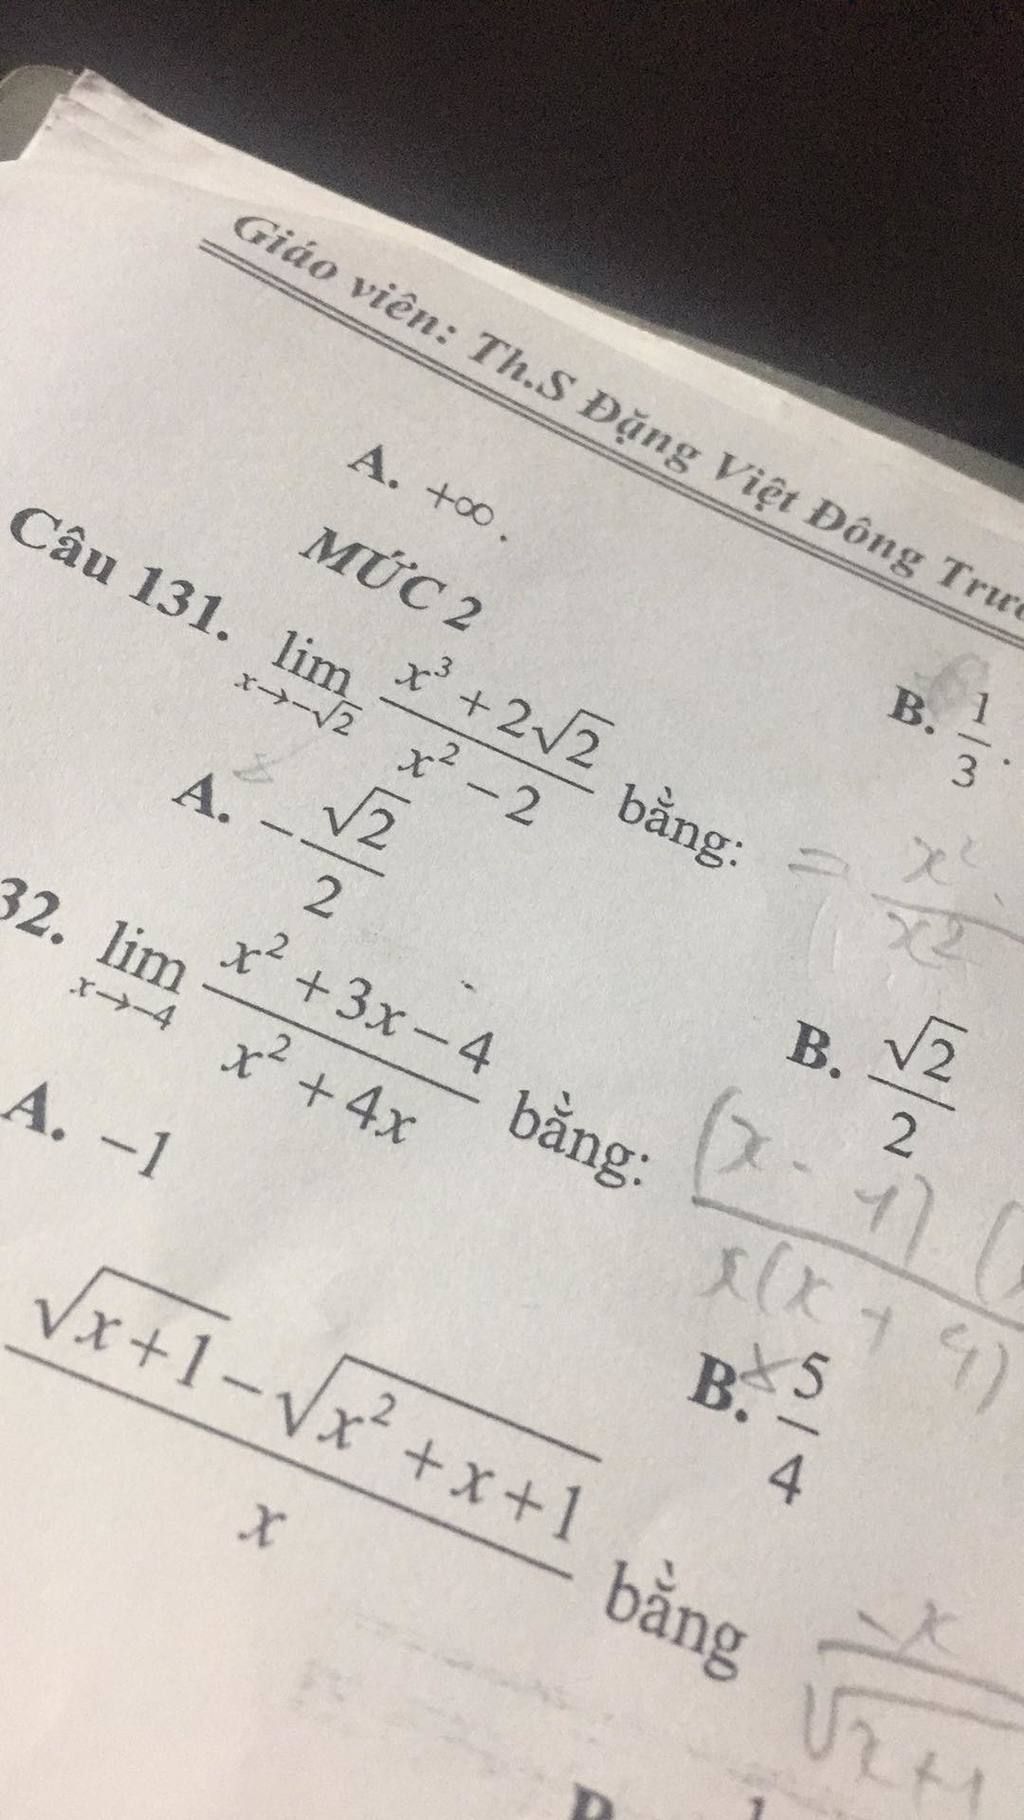 Giáo viên: Th.S Đặng Việt Đông
A. +∞. B. 1/3.
MỨC 2
Câu 131. lim x→-√2 (x³ + 2√2)/(x² - 2) bằng: = x²/x²
A. -√2/2 B. √2/2
32. lim x→-4 (x² + 3x - 4)/(x² + 4x) bằng: (x - 1)(/x(x + 4)
A. -1 B. 5/4
(√(x+1) - √(x² + x + 1))/x bằng -x/√(x+1